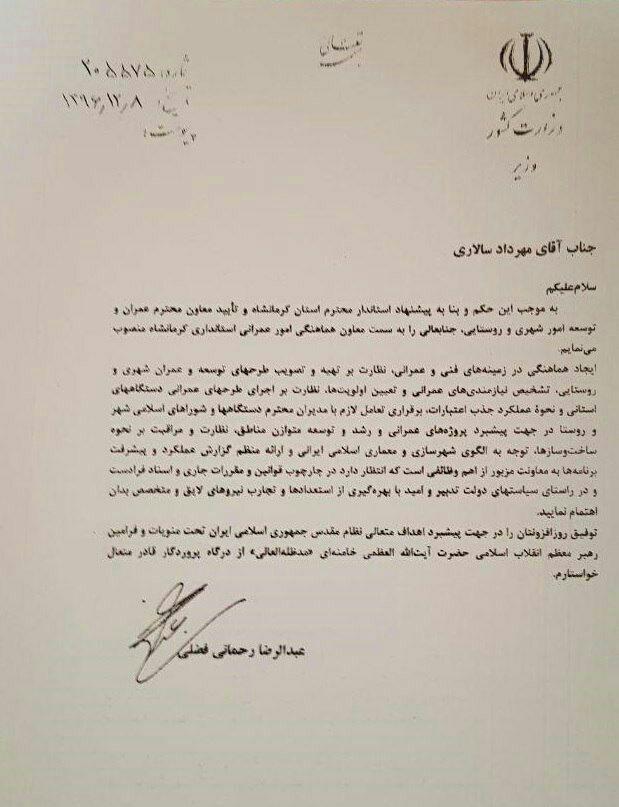 بسمه تعالی
جمهوری اسلامی ایران
وزارت کشور
وزیر
شماره: ۲۰۵۵۷۵
تاریخ: ۱۳۹۶/۱۲/۸
پیوست:
جناب آقای مهرداد سالاری
سلام‌علیکم
به موجب این حکم و بنا به پیشنهاد استاندار محترم استان کرمانشاه و تأیید معاون محترم عمران و
توسعه امور شهری و روستایی، جنابعالی را به سمت معاون هماهنگی امور عمرانی استانداری کرمانشاه منصوب
می‌نمایم.
ایجاد هماهنگی در زمینه‌های فنی و عمرانی، نظارت بر تهیه و تصویب طرحهای توسعه و عمران شهری و
روستایی، تشخیص نیازمندی‌های عمرانی و تعیین اولویت‌ها، نظارت بر اجرای طرحهای عمرانی دستگاههای
استانی و نحوهٔ عملکرد جذب اعتبارات، برقراری تعامل لازم با مدیران محترم دستگاهها و شوراهای اسلامی شهر
و روستا در جهت پیشبرد پروژه‌های عمرانی و رشد و توسعه متوازن مناطق، نظارت و مراقبت بر نحوه
ساخت‌وسازها، توجه به الگوی شهرسازی و معماری اسلامی ایرانی و ارائه منظم گزارش عملکرد و پیشرفت
برنامه‌ها به معاونت مزبور از اهم وظائفی است که انتظار دارد در چارچوب قوانین و مقررات جاری و اسناد فرادست
و در راستای سیاستهای دولت تدبیر و امید با بهره‌گیری از استعدادها و تجارب نیروهای لایق و متخصص بدان
اهتمام نمایید.
توفیق روزافزونتان را در جهت پیشبرد اهداف متعالی نظام مقدس جمهوری اسلامی ایران تحت منویات و فرامین
رهبر معظم انقلاب اسلامی حضرت آیت‌الله العظمی خامنه‌ای «مدظله‌العالی» از درگاه پروردگار قادر متعال
خواستارم.
عبدالرضا رحمانی فضلی